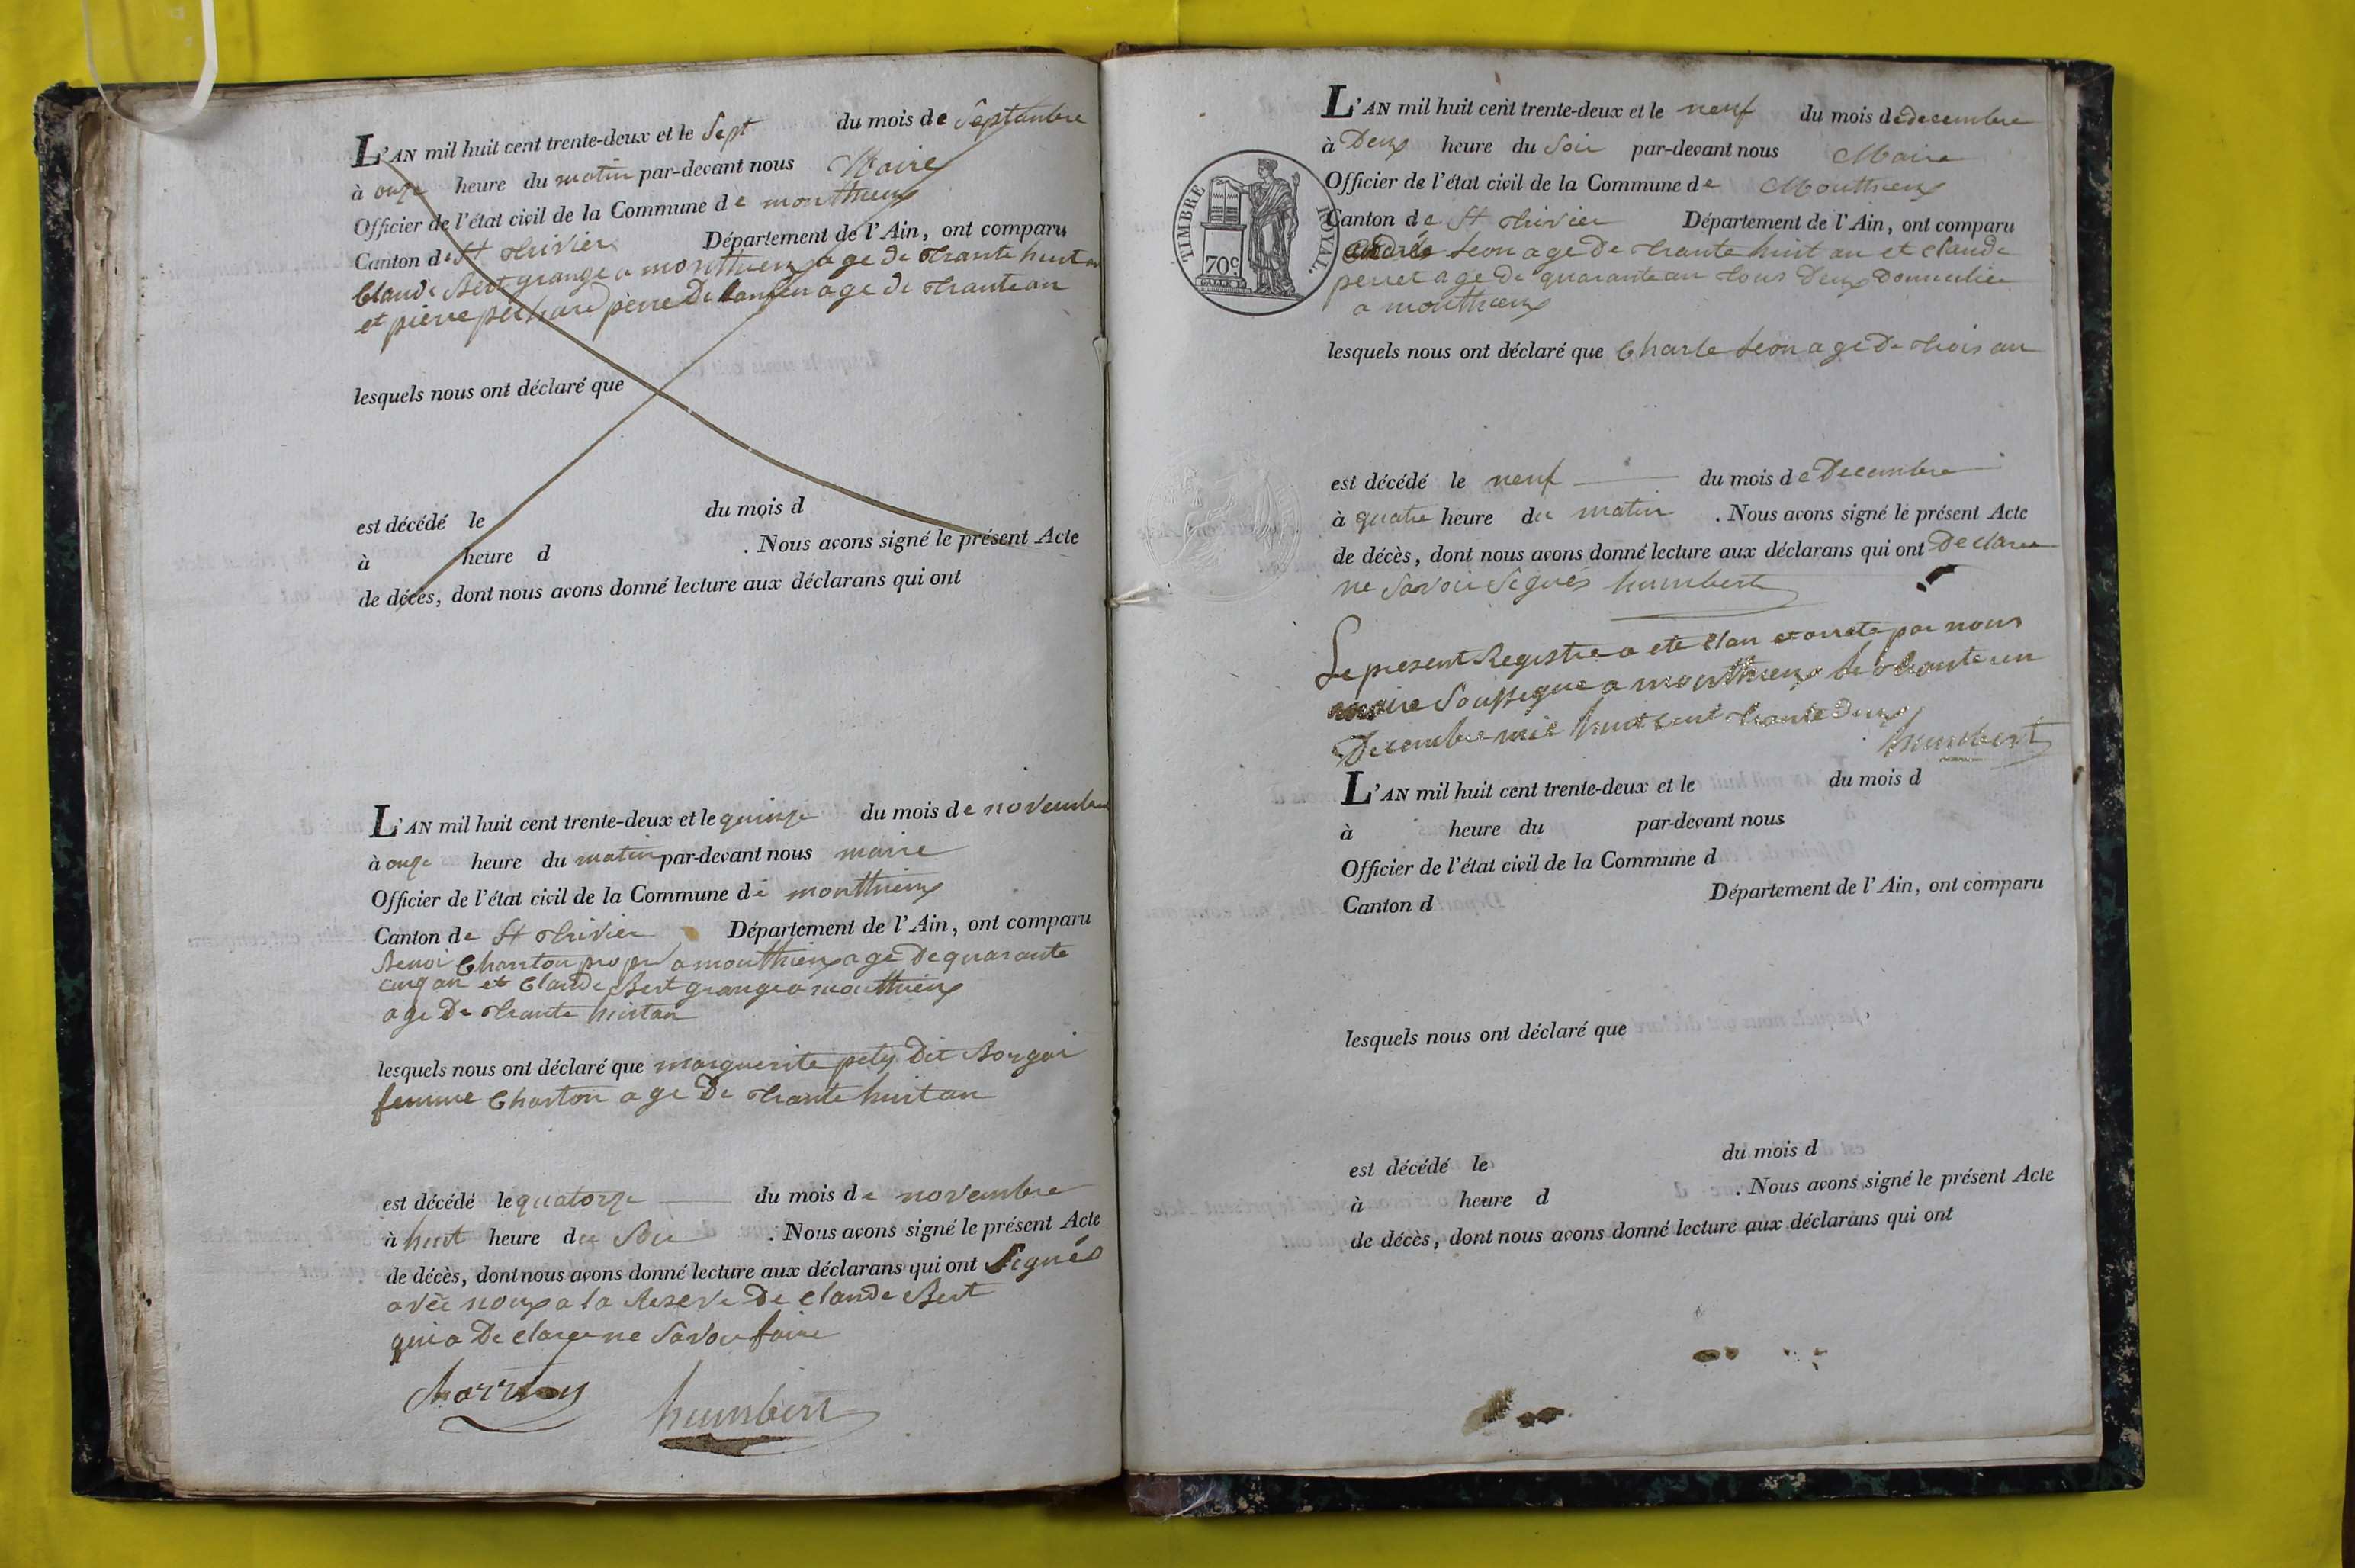 L'AN mil huit cent trente-deux et le Sept du mois de Septanbre
à onze heure du matin par-devant nous Maire
Officier de l'état civil de la Commune de monthieux
Canton de St Trivier Département de l'Ain, ont comparu
Claude Bert granger a monthieux age de trante huit an
et pierre pierre De age de trante an
lesquels nous ont déclaré que
est décédé le du mois d
à heure d . Nous avons signé le présent Acte
de décès, dont nous avons donné lecture aux déclarans qui ont
L'AN mil huit cent trente-deux et le quinze du mois de novembre
à onze heure du matin par-devant nous maire
Officier de l'état civil de la Commune de monthieux
Canton de St Trivier Département de l'Ain, ont comparu
Benoi Charton propr a monthieux age De quarante
cinq an et Claude Bert granger a monthieux
age De trante huit an
lesquels nous ont déclaré que marguerite Dit
femme Charton age De trante huit an
est décédé le quatorze du mois de novembre
à huit heure du Soir . Nous avons signé le présent Acte
de décès, dont nous avons donné lecture aux déclarans qui ont Signés
avec nous a la Reserve De Claude Bert
qui a De clarer ne Savoir faire
humbert
TIMBRE ROYAL.
70c
L'AN mil huit cent trente-deux et le neuf du mois de decembre
à Deux heure du Soir par-devant nous Maire
Officier de l'état civil de la Commune de Monthieux
Canton de St Trivier Département de l'Ain, ont comparu
Seon age De trante huit an et Claude
perret age De quarante an tous Deux Domicilier
a monthieux
lesquels nous ont déclaré que Charle Seon age De trois an
est décédé le neuf du mois de Decembre
à quatre heure du matin . Nous avons signé le présent Acte
de décès, dont nous avons donné lecture aux déclarans qui ont Declarer
ne Savoir Signés humbert
Le present Registre a eté Clau et arreté par nous
maire Soussigne a monthieux le trante un
Decembre mil huit cent trante Deux
humbert
L'AN mil huit cent trente-deux et le du mois d
à heure du par-devant nous
Officier de l'état civil de la Commune d
Canton d Département de l'Ain, ont comparu
lesquels nous ont déclaré que
est décédé le du mois d
à heure d . Nous avons signé le présent Acte
de décès, dont nous avons donné lecture aux déclarans qui ont